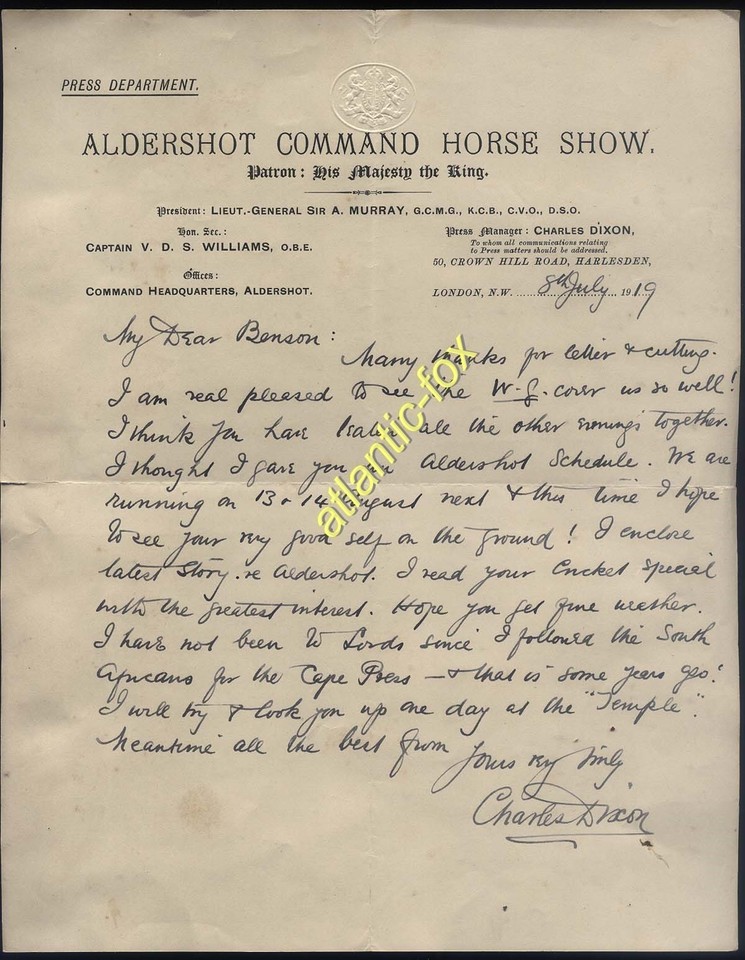 PRESS DEPARTMENT.
ALDERSHOT COMMAND HORSE SHOW.
Patron: His Majesty the King.
President: LIEUT.-GENERAL SIR A. MURRAY, G.C.M.G., K.C.B., C.V.O., D.S.O.
Hon. Sec.:
CAPTAIN V. D. S. WILLIAMS, O.B.E.
Offices:
COMMAND HEADQUARTERS, ALDERSHOT.
Press Manager: CHARLES DIXON,
To whom all communications relating
to Press matters should be addressed.
50, CROWN HILL ROAD, HARLESDEN,
LONDON, N.W. 8th July 1919
My Dear Benson:
Many thanks for letter & cutting.
I am real pleased to see the W.G. cover us so well!
I think you have beaten all the other evenings together.
I thought I gave you an Aldershot Schedule. We are
running on 13 & 14 August next & this time I hope
to see your very good self on the ground! I enclose
latest Story re Aldershot. I read your Cricket Special
with the greatest interest. Hope you get fine weather.
I have not been to Lords since I followed the South
Africans for the Cape Press — & that is some years ago!
I will try & look you up one day at the "Temple".
Meantime all the best from
Yours very
Charles Dixon
atlantic-fox